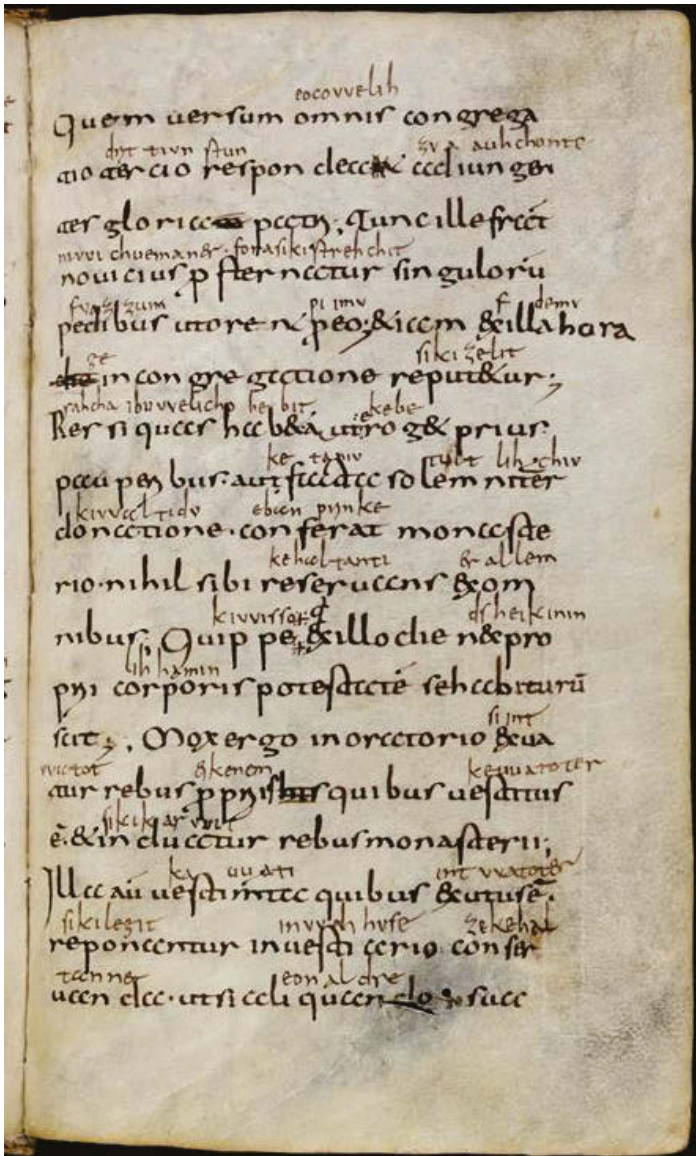 eocovvelih
Quem uersum omnis congrega
drittivn stun zva auhchonte
tio tercio respondeat adiungen
tes gloria patri, Tunc ille frat
nivvi chuemaner · forasikistrechit
novicius p sternatur singuloru
fuazzum pi imv demv
pedibus ut orent p eo, & iam & illa hora
ze sikizelit
in congregatione reput&ur;
rahcha ibuvvelicho hebit kebe
Res si quas hab& aut erog& prius
ke tapiv tuat lihchiv
pauperibus · aut facta solemniter
kivvaltidv eban pijnke
donatione · conferat monaste
kehaltanti er allem
rio · nihil sibi reseruans & om
kivvisso dsheikinin
nibus; Quippe & illo die n& pro
lihhamin
prii corporis potestatē se habiturū
si int
scit;, Mox ergo in oratorio exua
vvatot eikenem kevvatoter
tur rebus ppriis quibus uestitus
ē · & induatur rebus monasterii;
ka uuati int vvatoter
Illa aū uestimenta quibus exutus ē ·
sikilegit in vvath huse ze kehal
reponantur in uestiario conser
tanne eonaldre
uanda · ut si aliquando sua